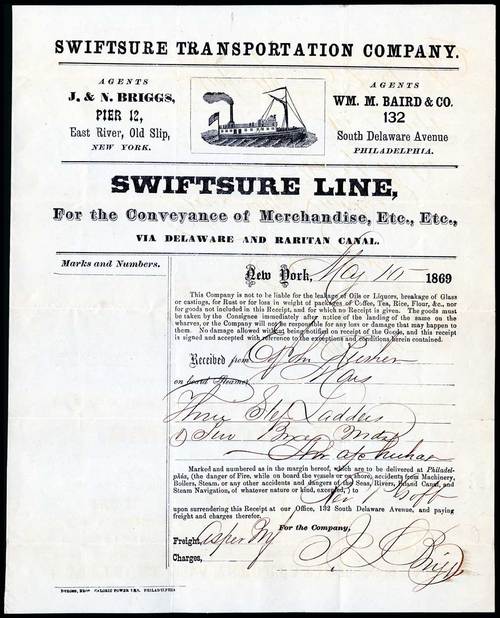 SWIFTSURE TRANSPORTATION COMPANY.
AGENTS
J. & N. BRIGGS,
PIER 12,
East River, Old Slip,
NEW YORK.
AGENTS
WM. M. BAIRD & CO.
132
South Delaware Avenue
PHILADELPHIA.
SWIFTSURE LINE,
For the Conveyance of Merchandise, Etc., Etc.,
VIA DELAWARE AND RARITAN CANAL.
Marks and Numbers.
New York, May 10 1869
This Company is not to be liable for the leakage of Oils or Liquors, breakage of Glass
or castings, for Rust or for loss in weight of packages of Coffee, Tea, Rice, Flour, &c., nor
for goods not included in this Receipt, and for which no Receipt is given. The goods must
be taken by the Consignee immediately after notice of the landing of the same on the
wharves, or the Company will not be responsible for any loss or damage that may happen to
them. No damage allowed without being notified on receipt of the Goods, and this receipt
is signed and accepted with reference to the exceptions and conditions herein contained.
Received from
on board Steamer Mars
Three Step Ladders
Marked and numbered as in the margin hereof, which are to be delivered at Philadel-
phia, (the danger of Fire, while on board the vessels or on shore, accidents from Machinery,
Boilers, Steam, or any other accidents and dangers of the Seas, Rivers, Inland Canal, and
Steam Navigation, of whatever nature or kind, excepted,) to
upon surrendering this Receipt at our Office, 132 South Delaware Avenue, and paying
freight and charges therefor.
For the Company,
Freight,
Charges,
J. Briggs